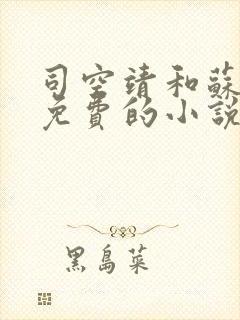 司空靖和蘇
免費的小說
黑島菜